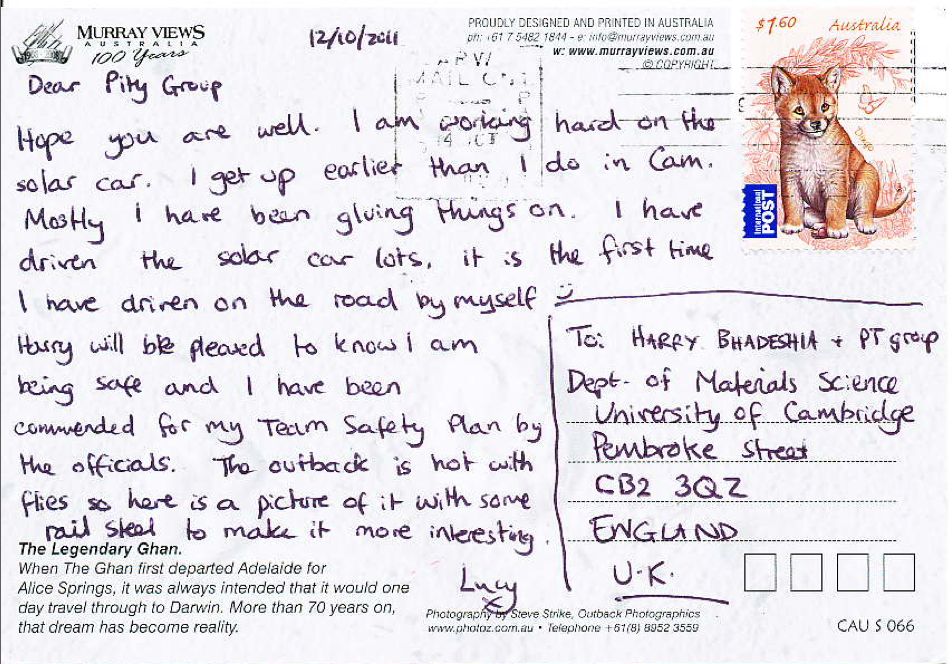 MURRAY VIEWS
AUSTRALIA
100 Years
12/10/2011
PROUDLY DESIGNED AND PRINTED IN AUSTRALIA
ph: +61 7 5482 1844 - e: info@murrayviews.com.au
w: www.murrayviews.com.au
© COPYRIGHT
$1.60 Australia
Dingo
International
POST
MAIL
Dear Group
Hope you are well. I am working hard on the
solar car. I get up earlier than I do in Cam.
Mostly I have been gluing things on. I have
driven the solar car lots, it is the first time
I have driven on the road by myself
Harry will be pleased to know I am
being safe and I have been
commended for my Team Safety Plan by
the officials. The outback is hot with
flies so here is a picture of it with some
rail steel to make it more interesting.
Lucy
x
To: HARRY BHADESHIA + PT group
Dept. of Materials Science
University of Cambridge
Pembroke Street
CB2 3QZ
ENGLAND
U.K.
The Legendary Ghan.
When The Ghan first departed Adelaide for
Alice Springs, it was always intended that it would one
day travel through to Darwin. More than 70 years on,
that dream has become reality.
Photography by Steve Strike, Outback Photographics
www.photoz.com.au • Telephone +61(8) 8952 3559
CAU S 066